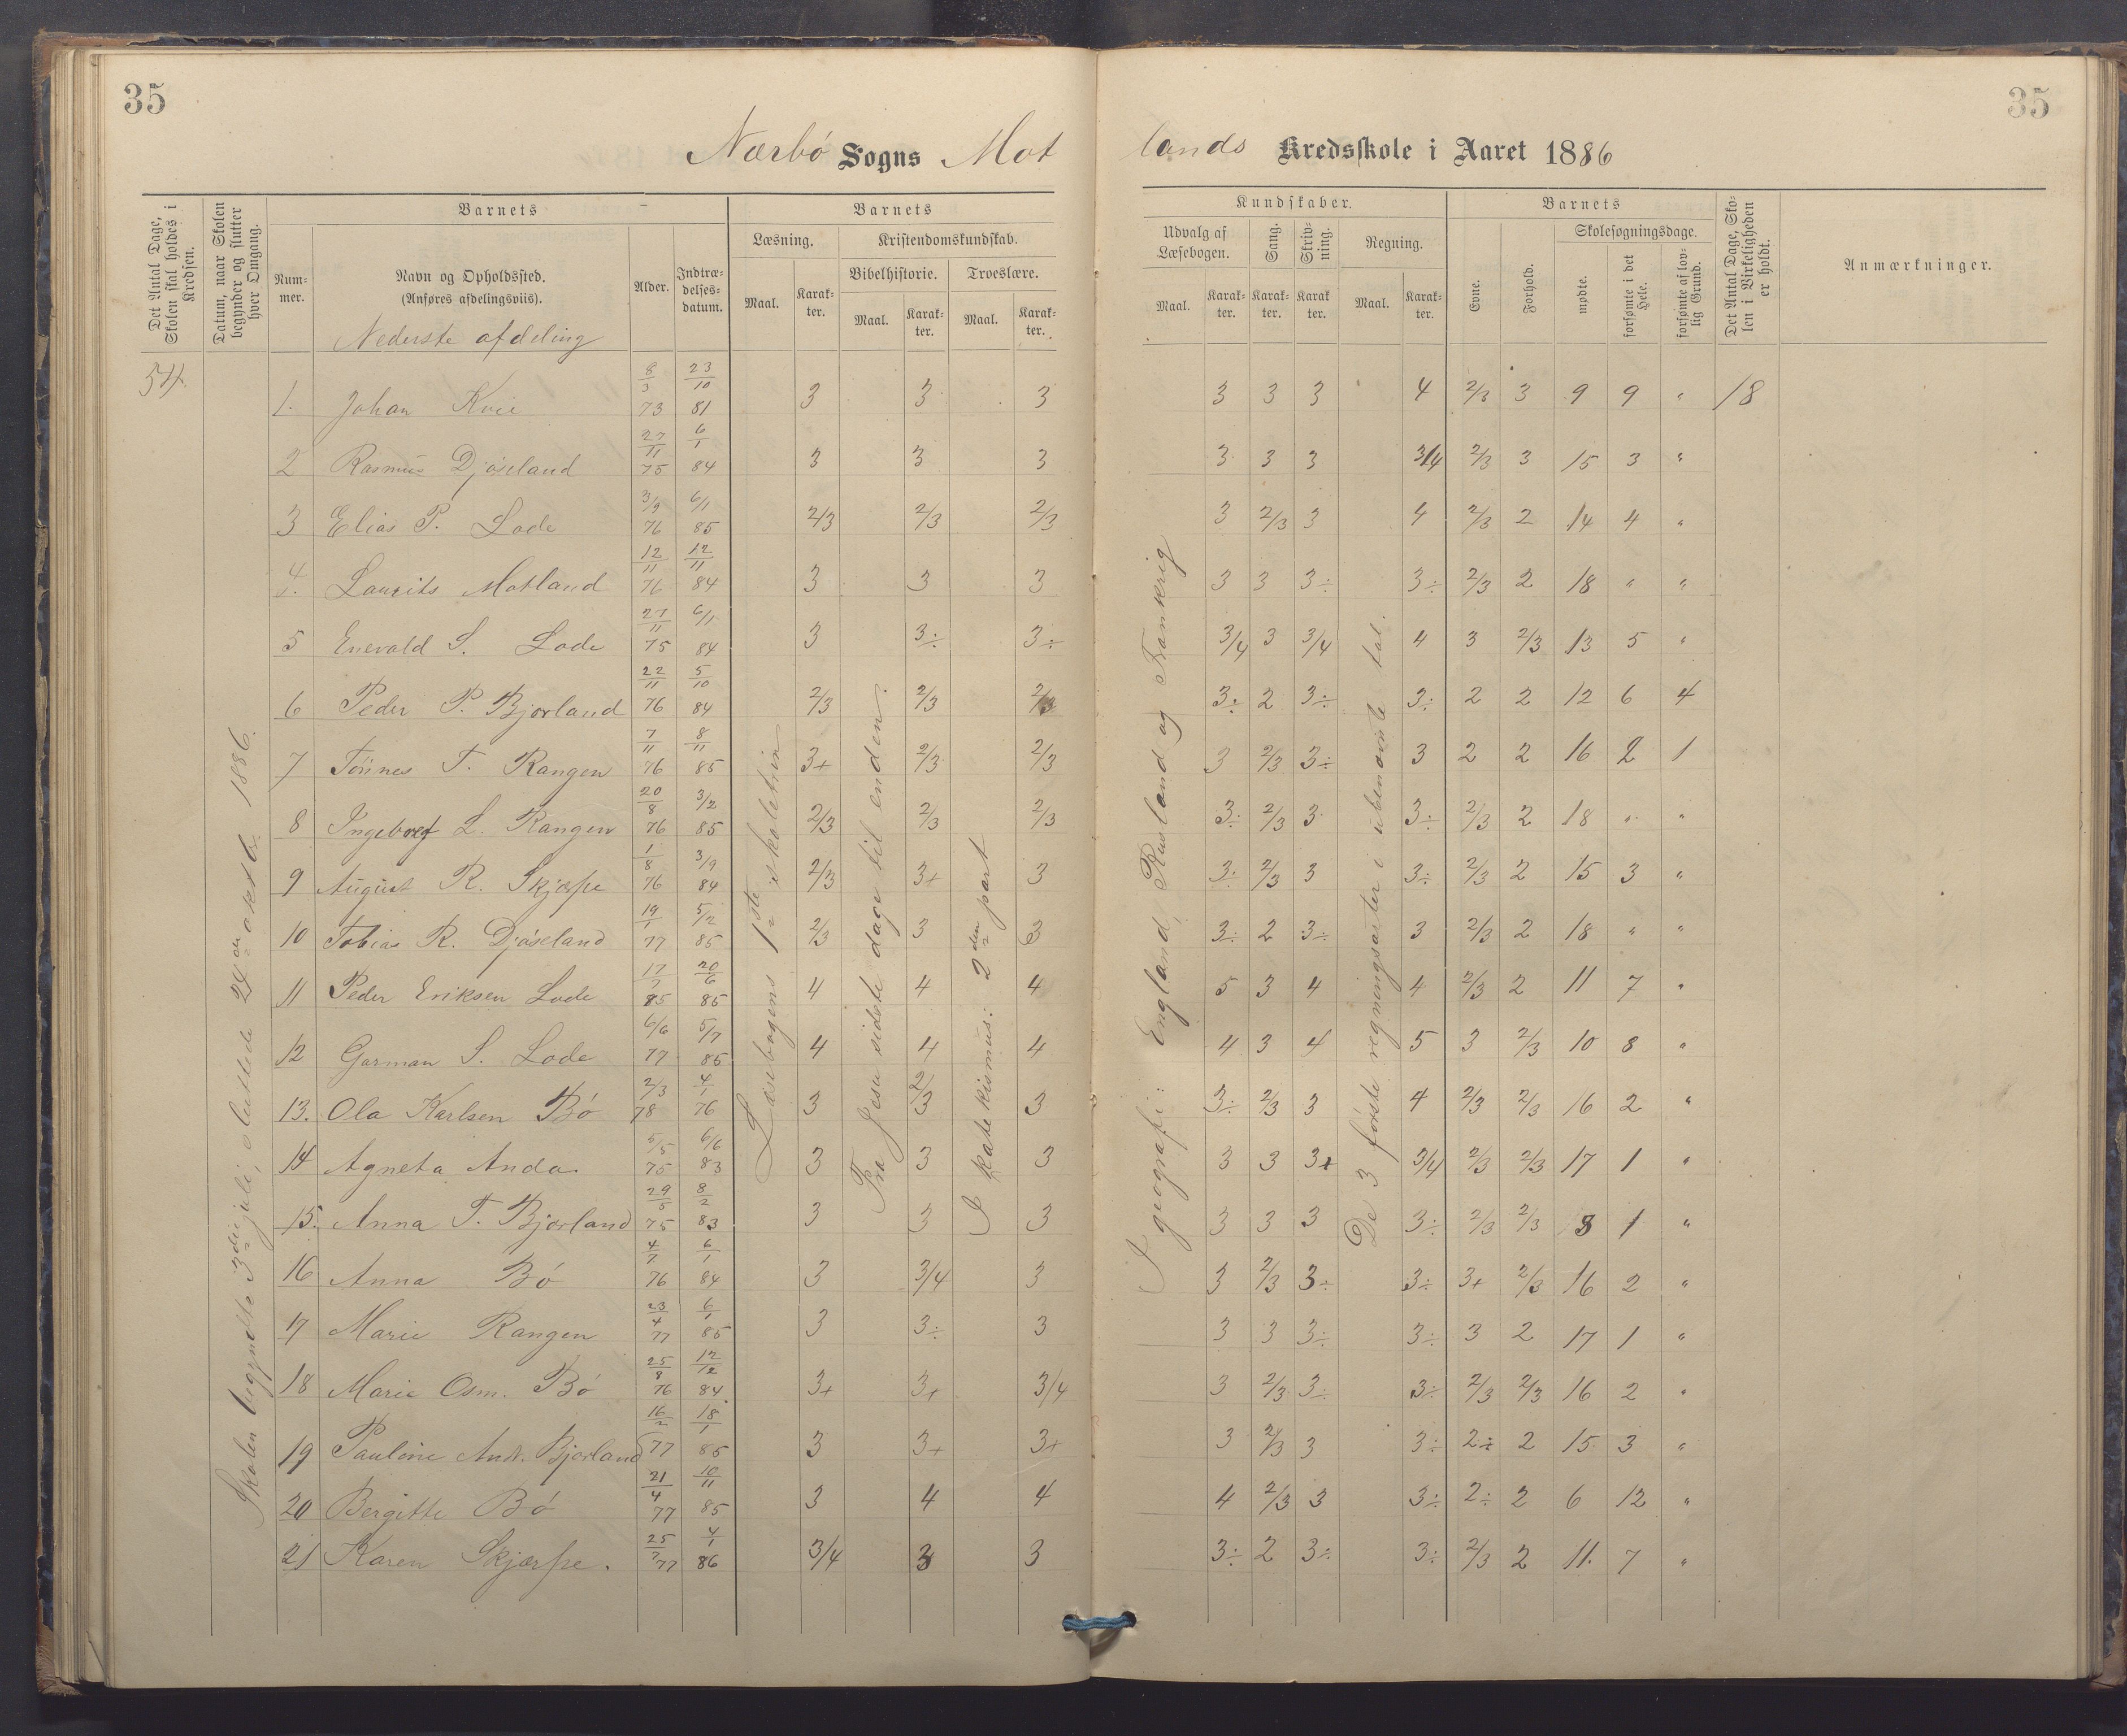 35
35
Nærbø Sogns Mot
lands Kredsskole i Aaret 1886
Det Antal Dage, Skolen skal holdes i Kredsen.
Datum, naar Skolen begynder og slutter hver Omgang.
Barnets
Num-mer.
Navn og Opholdssted.
(Anføres afdelingsviis).
Nederste afdeling
Alder.
Indtræ-delses-datum.
Barnets
Læsning.
Maal.
Karak-ter.
Kristendomskundskab.
Bibelhistorie.
Maal.
Karak-ter.
Troeslære.
Maal.
Karak-ter.
Kundskaber.
Udvalg af Læsebogen.
Maal.
Karak-ter.
Sang.
Karak-ter.
Skriv-ning.
Karak ter.
Regning.
Maal.
Karak-ter.
Barnets
Evne.
Forhold.
Skolesøgningsdage.
mødte.
forsømte i det Hele.
forsømte af lov-lig Grund.
Det Antal Dage, Sko-len i Virkeligheden er holdt.
Anmærkninger.
54
Skolen begyndte 3die juli, sluttede 24de oktob. 1886.
Læsebogens 1ste skoletrin
Fra Jesu sidste dage til enden.
I katekismus: 2den part
I geografi: England, Rusland og Frankrig
De 3 første regningsarter i ubenævnte tal.
1. Johan Kvie 8/3 73 23/10 81 3 3 3 3 3 3 4 2/3 3 9 9 " 18
2 Rasmus Djøseland 27/11 75 6/1 84 3 3 3 3 3 3 3/4 2/3 3 15 3 "
3 Elias P. Lode 3/9 76 6/1 85 2/3 2/3 2/3 3 2/3 3 4 2/3 2 14 4 "
4. Laurits Motland 12/11 76 12/11 84 3 3 3 3 3 3÷ 3÷ 2/3 2 18 " "
5 Enevald S. Lode 27/11 75 6/1 84 3 3÷ 3÷ 3/4 3 3/4 4 3 2/3 13 5 "
6 Peder P. Bjorland 22/11 76 5/10 84 2/3 2/3 2/3 3÷ 2 3÷ 3÷ 2 2 12 6 4
7 Tønnes T. Rangen 7/11 76 8/11 85 3+ 2/3 2/3 3 2/3 3÷ 3 2 2 16 2 1
8 Ingeborg L. Rangen 20/8 76 3/2 85 2/3 2/3 2/3 3÷ 2/3 3 3÷ 2/3 2 18 " "
9 August R. Skjærpe 1/8 76 3/9 84 2/3 3+ 3 3÷ 2/3 3 3÷ 2/3 2 15 3 "
10 Tobias R. Djøseland 19/1 77 5/2 85 2/3 3 3 3÷ 2 3÷ 3 2/3 2 18 " "
11 Peder Eriksen Lode 17/7 75 20/6 85 4 4 4 5 3 4 4 2/3 2 11 7 "
12 Garman S. Lode 6/6 77 5/7 85 4 4 4 4 3 4 5 3 2/3 10 8 "
13. Ola Karlsen Bø 2/3 78 4/1 76 3 2/3 3 3÷ 2/3 3 4 2/3 2/3 16 2 "
14 Agneta Anda. 5/5 75 6/6 83 3 3 3 3 3 3+ 3/4 2/3 2/3 17 1 "
15. Anna T. Bjorland 29/5 75 8/2 83 3 3 3 3 3 3 3÷ 2/3 2/3 8 1 "
16 Anna Bø 4/7 76 6/1 84 3 3/4 3 3 2/3 3÷ 3÷ 3+ 2/3 16 2 "
17 Marie Rangen 23/4 77 6/1 85 3 3÷ 3 3 3 3÷ 3÷ 3 2 17 1 "
18 Marie Osm. Bø 25/8 76 12/12 84 3+ 3+ 3/4 3 2/3 3÷ 3÷ 2/3 2/3 16 2 "
19 Pauline Andr. Bjorland 16/2 77 18/1 85 3 3+ 3+ 3 2/3 3 3÷ 2÷ 2 15 3 "
20 Bergitte Bø 21/4 77 10/11 85 3 4 4 4 2/3 3 3÷ 2÷ 2 6 12 "
21 Karen Skjærpe. 25/7 77 4/1 86 3/4 3 3 3÷ 2 3÷ 3÷ 2/3 2 11. 7 "